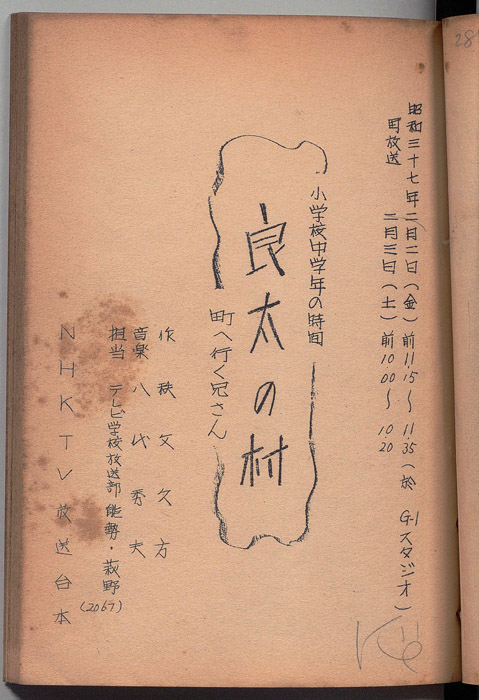 昭和三十七年二月二日(金)前11.15〜11.35(於 G-1スタジオ)
再放送 二月三日(土)前10.00〜10.20
小学校中学年の時間
良太の村
町へ行く兄さん
作 秩父久方
音楽 八代秀夫
担当 テレビ学校放送部 能勢・萩野
(2067)
NHKTV放送台本
28